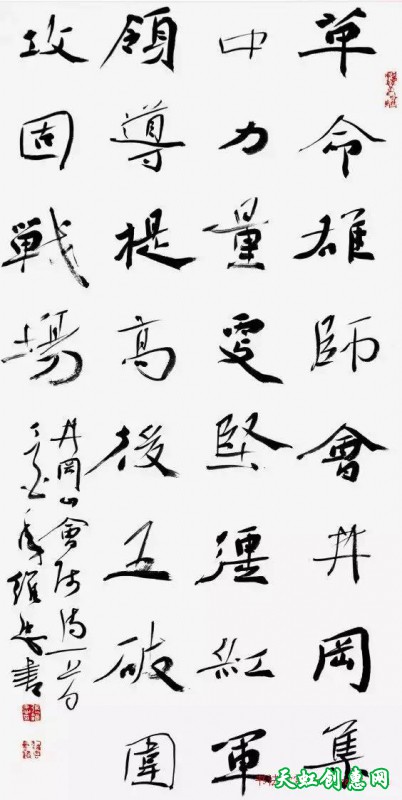 革命雄師會井岡集
中力量更堅彊紅軍
領導提高後五破圍
攻固戰場
井岡山會師詩一首
書
天虹创惠网